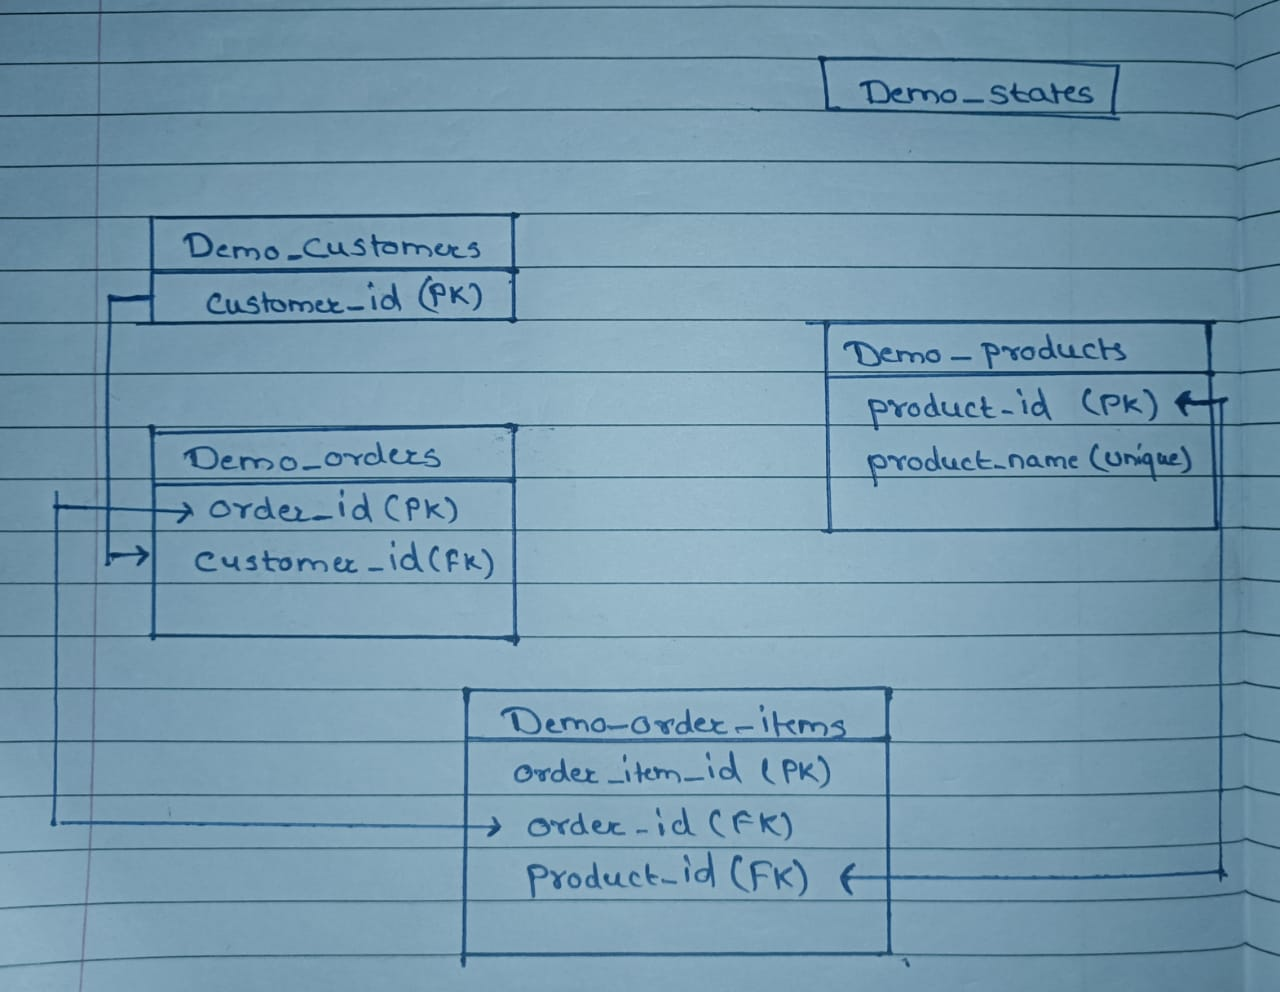 Demo_states
Demo_customers
customer_id (PK)
Demo_products
product_id (PK)
product_name (unique)
Demo_orders
order_id (PK)
customer_id (FK)
Demo_order_items
order_item_id (PK)
order_id (FK)
product_id (FK)